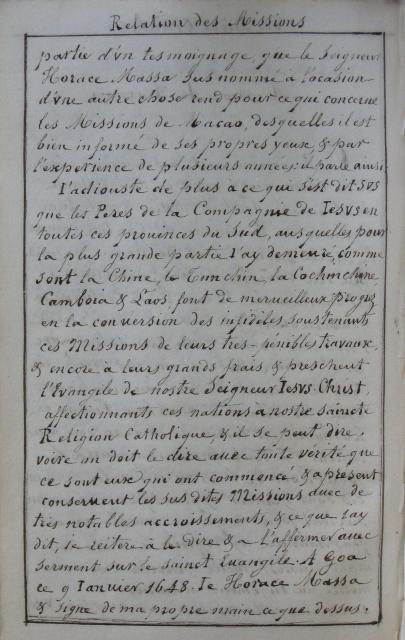 Relation des Missions
partie d'vn tesmoignage que le Seigneur
Horace Massa susnommé a l'ocasion
d'vne autre chose rend pour ce qui concerne
les Missions de Macao, desquelles il est
bien informé de ses propres yeux, & par
l'experience de plusieurs années: il parle ainsi.
I'adiouste de plus a ce qui s'est dit sus
que les Peres de la Compagnie de Iesvs en
toutes ces prouinces du Sud, ausquelles pour
la plus grande partie i'ay demeuré, comme
sont la Chine, le Tunchin, la Cochinchine
Camboia & Laos font de merueilleux progrez
en la conuersion des infideles, soustenants
ces Missions de leurs tres-penibles travaux,
& encore a leurs grands frais, & preschent
l'Evangile de nostre Seigneur Iesvs Christ,
affectionnants ces nations a nostre saincte
Religion Catholique, & il se peut dire,
voire on doit le dire auec toute verité que
ce sont eux qui ont commencé, & a present
conseruent les sus dites Missions auec de
tres notables accroissements, & ce que i'ay
dit, ie reitere à le dire & a l'affermer auec
serment sur le sainct Euangile. A Goa
ce 9 Ianuier 1648. Ie Horace Massa
& signe de ma propre main ce que dessus.